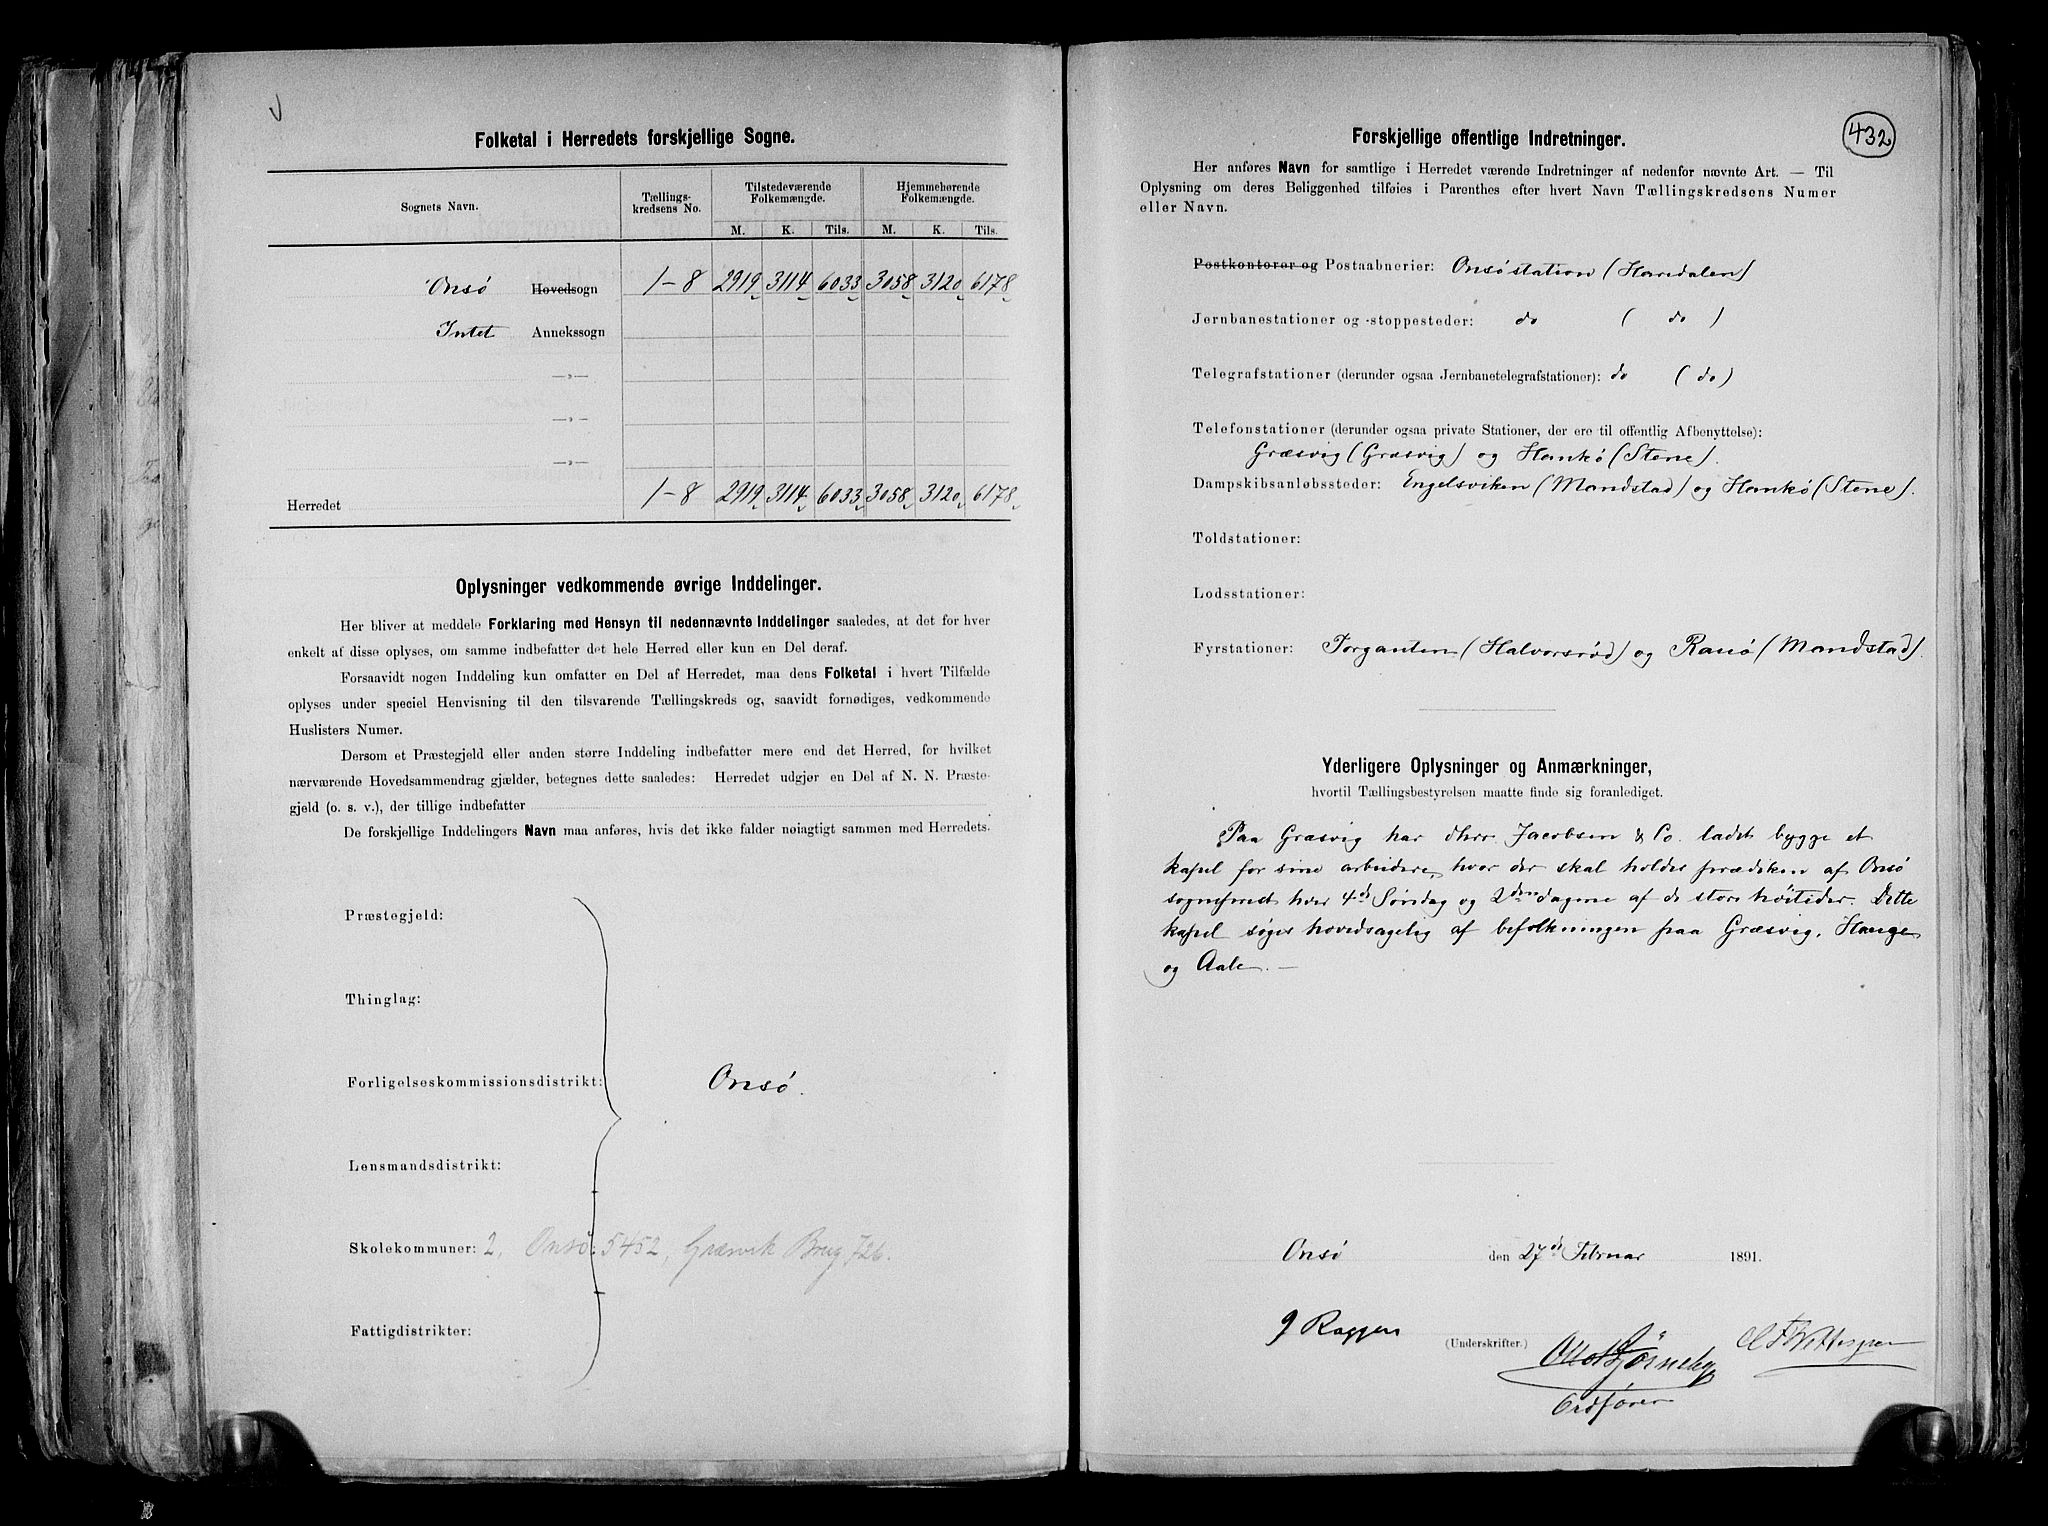 Folketal i Herredets forskjellige Sogne.
Sognets Navn. Tællings- kredsens No. Tilstedeværende Folkemængde. Hjemmehørende Folkemængde.
M. K. Tils. M. K. Tils.
Onsø Hovedsogn 1-8 2919 3114 6033 3058 3120 6178
Intet Annekssogn
—»—
—»—
—»—
Herredet 1-8 2919 3114 6033 3058 3120 6178
Oplysninger vedkommende øvrige Inddelinger.
Her bliver at meddele Forklaring med Hensyn til nedennævnte Inddelinger saaledes, at det for hver
enkelt af disse oplyses, om samme indbefatter det hele Herred eller kun en Del deraf.
Forsaavidt nogen Inddeling kun omfatter en Del af Herredet, maa dens Folketal i hvert Tilfælde
oplyses under speciel Henvisning til den tilsvarende Tællingskreds og, saavidt fornødiges, vedkommende
Huslisters Numer.
Dersom et Præstegjeld eller anden større Inddeling indbefatter mere end det Herred, for hvilket
nærværende Hovedsammendrag gjælder, betegnes dette saaledes: Herredet udgjør en Del af N. N. Præste-
gjeld (o. s. v.), der tillige indbefatter
De forskjellige Inddelingers Navn maa anføres, hvis det ikke falder nøiagtigt sammen med Herredets.
Præstegjeld:
Thinglag:
Forligelseskommissionsdistrikt: Onsø.
Lensmandsdistrikt:
Skolekommuner: 2, Onsø: 5452, Græsvik Brug 726.
Fattigdistrikter:
432
Forskjellige offentlige Indretninger.
Her anføres Navn for samtlige i Herredet værende Indretninger af nedenfor nævnte Art. — Til
Oplysning om deres Beliggenhed tilføies i Parenthes efter hvert Navn Tællingskredsens Numer
eller Navn.
Postkontorer og Postaabnerier: Onsø station (Haredalen)
Jernbanestationer og -stoppesteder: do ( do )
Telegrafstationer (derunder ogsaa Jernbanetelegrafstationer): do (do)
Telefonstationer (derunder ogsaa private Stationer, der ere til offentlig Afbenyttelse):
Græsvig (Græsvig) og Hankø (Stene).
Dampskibsanløbssteder: Engelsviken (Mandstad) og Hankø (Stene).
Toldstationer:
Lodsstationer:
Fyrstationer: Torgauten (Halvorsrød) og Rauø (Mandstad).
Yderligere Oplysninger og Anmærkninger,
hvortil Tællingsbestyrelsen maatte finde sig foranlediget.
Paa Græsvig har dHrr. Jacobsen & Co. ladet bygge et
kapel for sine arbeidere, hvor der skal holdes prædiken af Onsø
sogneprest hver 4de Søndag og 2den dagene af de store høitider. Dette
kapel søges hovedsagelig af befolkningen paa Græsvig, Hauge
og Aale. —
Onsø den 27de Februar 1891.
(Underskrifter.)
J Raggen
Ordfører